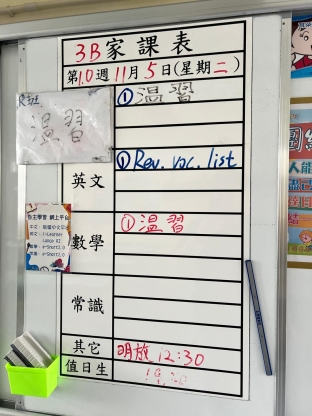 3B家課表
第10週11月5日(星期二)
R班
溫習
①溫習
英文
①Rev. voc. list
數學
①溫習
常識
其它
明放12:30
值日生
自主學習 網上平台